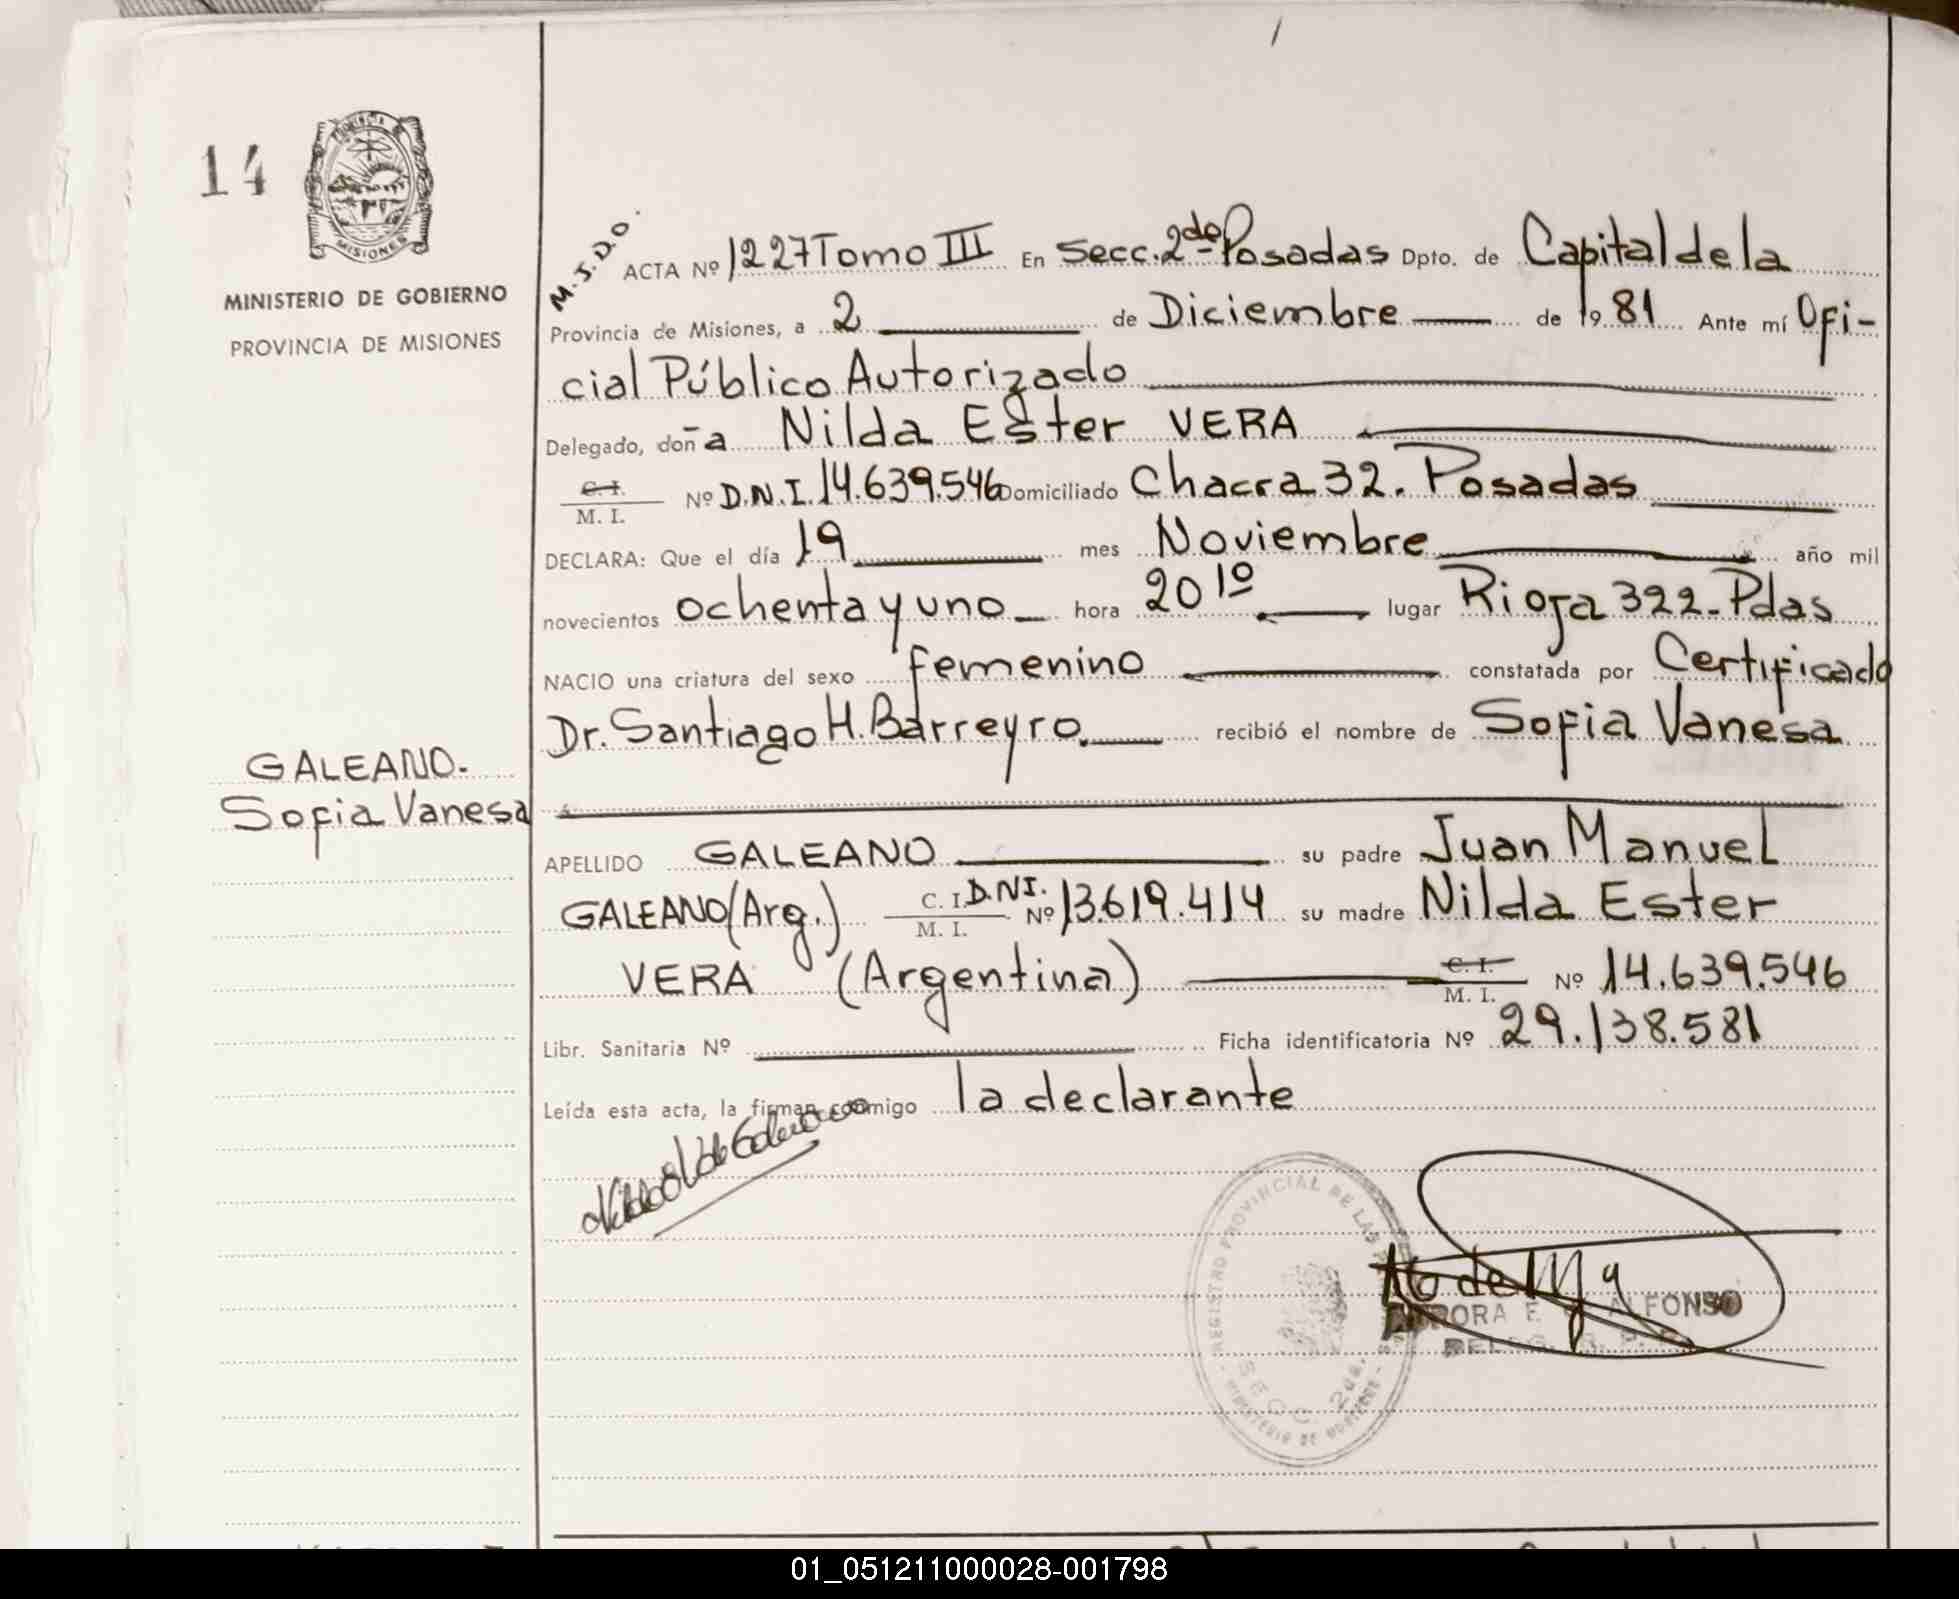 14
PROVINCIA DE
MISIONES
MINISTERIO DE GOBIERNO
PROVINCIA DE MISIONES
GALEANO.
Sofia Vanesa
M.J.D.O.
ACTA Nº 1227 Tomo III En Secc. 2da Posadas Dpto. de Capital de la
Provincia de Misiones, a 2 de Diciembre de 1981 Ante mí Ofi-
cial Público Autorizado
Delegado, doña Nilda Ester VERA
C. I.
M. I. Nº D.N.I. 14.639.546 Domiciliado Chacra 32. Posadas
DECLARA: Que el día 19 mes Noviembre año mil
novecientos ochenta y uno hora 20 10 lugar Rioja 322-Pdas
NACIO una criatura del sexo femenino constatada por Certificado
Dr. Santiago H. Barreyro. recibió el nombre de Sofia Vanesa
APELLIDO GALEANO su padre Juan Manuel
GALEANO (Arg.) C. I. D.N.I. Nº 13.619.414 su madre Nilda Ester
M. I.
VERA (Argentina) C. I. Nº 14.639.546
M. I.
Libr. Sanitaria Nº Ficha identificatoria Nº 29.138.581
Leída esta acta, la firman conmigo la declarante
REGISTRO PROVINCIAL DE LAS
SECC. 2da.
MINISTERIO DE GOBIERNO
AURORA E. ALFONSO
01_051211000028-001798